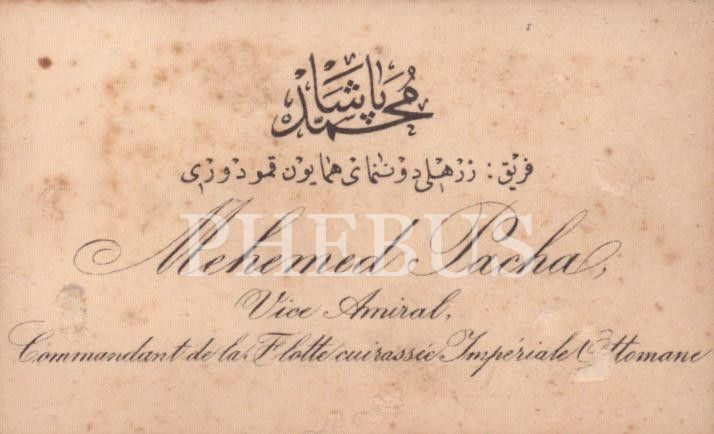 محمد پاشا
فريق : زرهلى دوننماى همايون قمودورى
PHEBUS
Mehemed Pacha,
Vice Amiral,
Commandant de la Flotte cuirassée Impériale Ottomane